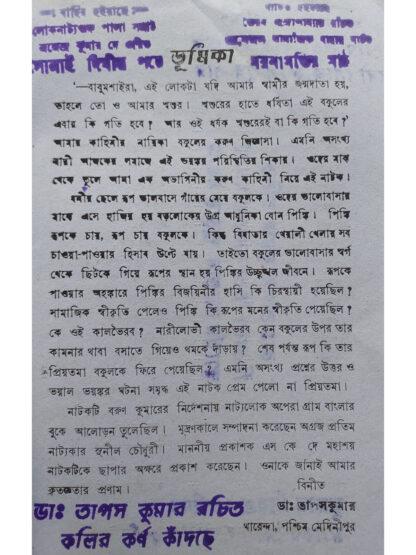 লোকনাট্যের পালা সম্রাট
ব্রজেন্দ্র কুমার দে প্রণীত
সোনাই দিঘীর পাড়ে
ভূমিকা
'—বাবুমশাইরা, এই লোকটা যদি আমার স্বামীর জন্মদাতা হয়,
তাহলে তো ও আমার শ্বশুর। শ্বশুরের হাতে ধর্ষিতা এই বকুলের
এবার কি গতি হবে? আর ওই ধর্ষক শ্বশুরেরই বা কি গতি হবে?
আমার কাহিনীর নায়িকা বকুলের করুণ জিজ্ঞাসা। এমনি অসংখ্য
নারী আজকের সমাজে এই ভয়ঙ্কর পরিস্থিতির শিকার। ওদের মাঝ
থেকে তুলে আনা এক অভাগিনীর করুণ কাহিনী নিয়ে এই নাটক।
ধনীর ছেলে রূপ ভালবাসে গাঁয়ের মেয়ে বকুলকে। ওদের ভালোবাসার
মাঝে এসে হাজির হয় বড়লোকের উগ্র আধুনিকা বোন পিঙ্কি। পিঙ্কি
রূপকে চায়, রূপ চায় বকুলকে। কিন্তু বিধাতার খেয়ালী খেলায় সব
চাওয়া-পাওয়ার হিসাব উল্টে যায়। তাইতো বকুলের ভালোবাসার স্বর্গ
থেকে ছিটকে গিয়ে রূপের স্থান হয় পিঙ্কির উচ্ছৃঙ্খল জীবনে। রূপকে
পাওয়ার অহঙ্কারে পিঙ্কির বিজয়িনীর হাসি কি চিরস্থায়ী হয়েছিল?
সামাজিক স্বীকৃতি পেলেও পিঙ্কি কি রূপের মনের স্বীকৃতি পেয়েছিল?
কে ওই কালভৈরব? নারীলোভী কালভৈরব কেন বকুলের উপর তার
কামনার থাবা বসাতে গিয়েও থমকে দাঁড়ায়? শেষ পর্যন্ত রূপ কি তার
প্রিয়তমা বকুলকে ফিরে পেয়েছিল? এমনি অসংখ্য প্রশ্নের উত্তর ও
ভয়াল ভয়ঙ্কর ঘটনা সমৃদ্ধ এই নাটক প্রেম পেলো না প্রিয়তমা।
নাটকটি বরুণ কুমারের নির্দেশনায় নাট্যলোক অপেরা গ্রাম বাংলার
বুকে আলোড়ন তুলেছিল। মুদ্রণকালে সম্পাদনা করেছেন অগ্রজ প্রতিম
নাট্যকার সুনীল চৌধুরী। মাননীয় প্রকাশক এস কে দে মহাশয়
নাটকটিকে ছাপার অক্ষরে প্রকাশ করেছেন। ওনাকে জানাই আমার
কৃতজ্ঞতার প্রণাম।
বিনীত
ডাঃ তাপসকুমার
ধারেন্দা, পশ্চিম মেদিনীপুর
ডাঃ তাপস কুমার রচিত
কলির কর্ণ কাঁদছে